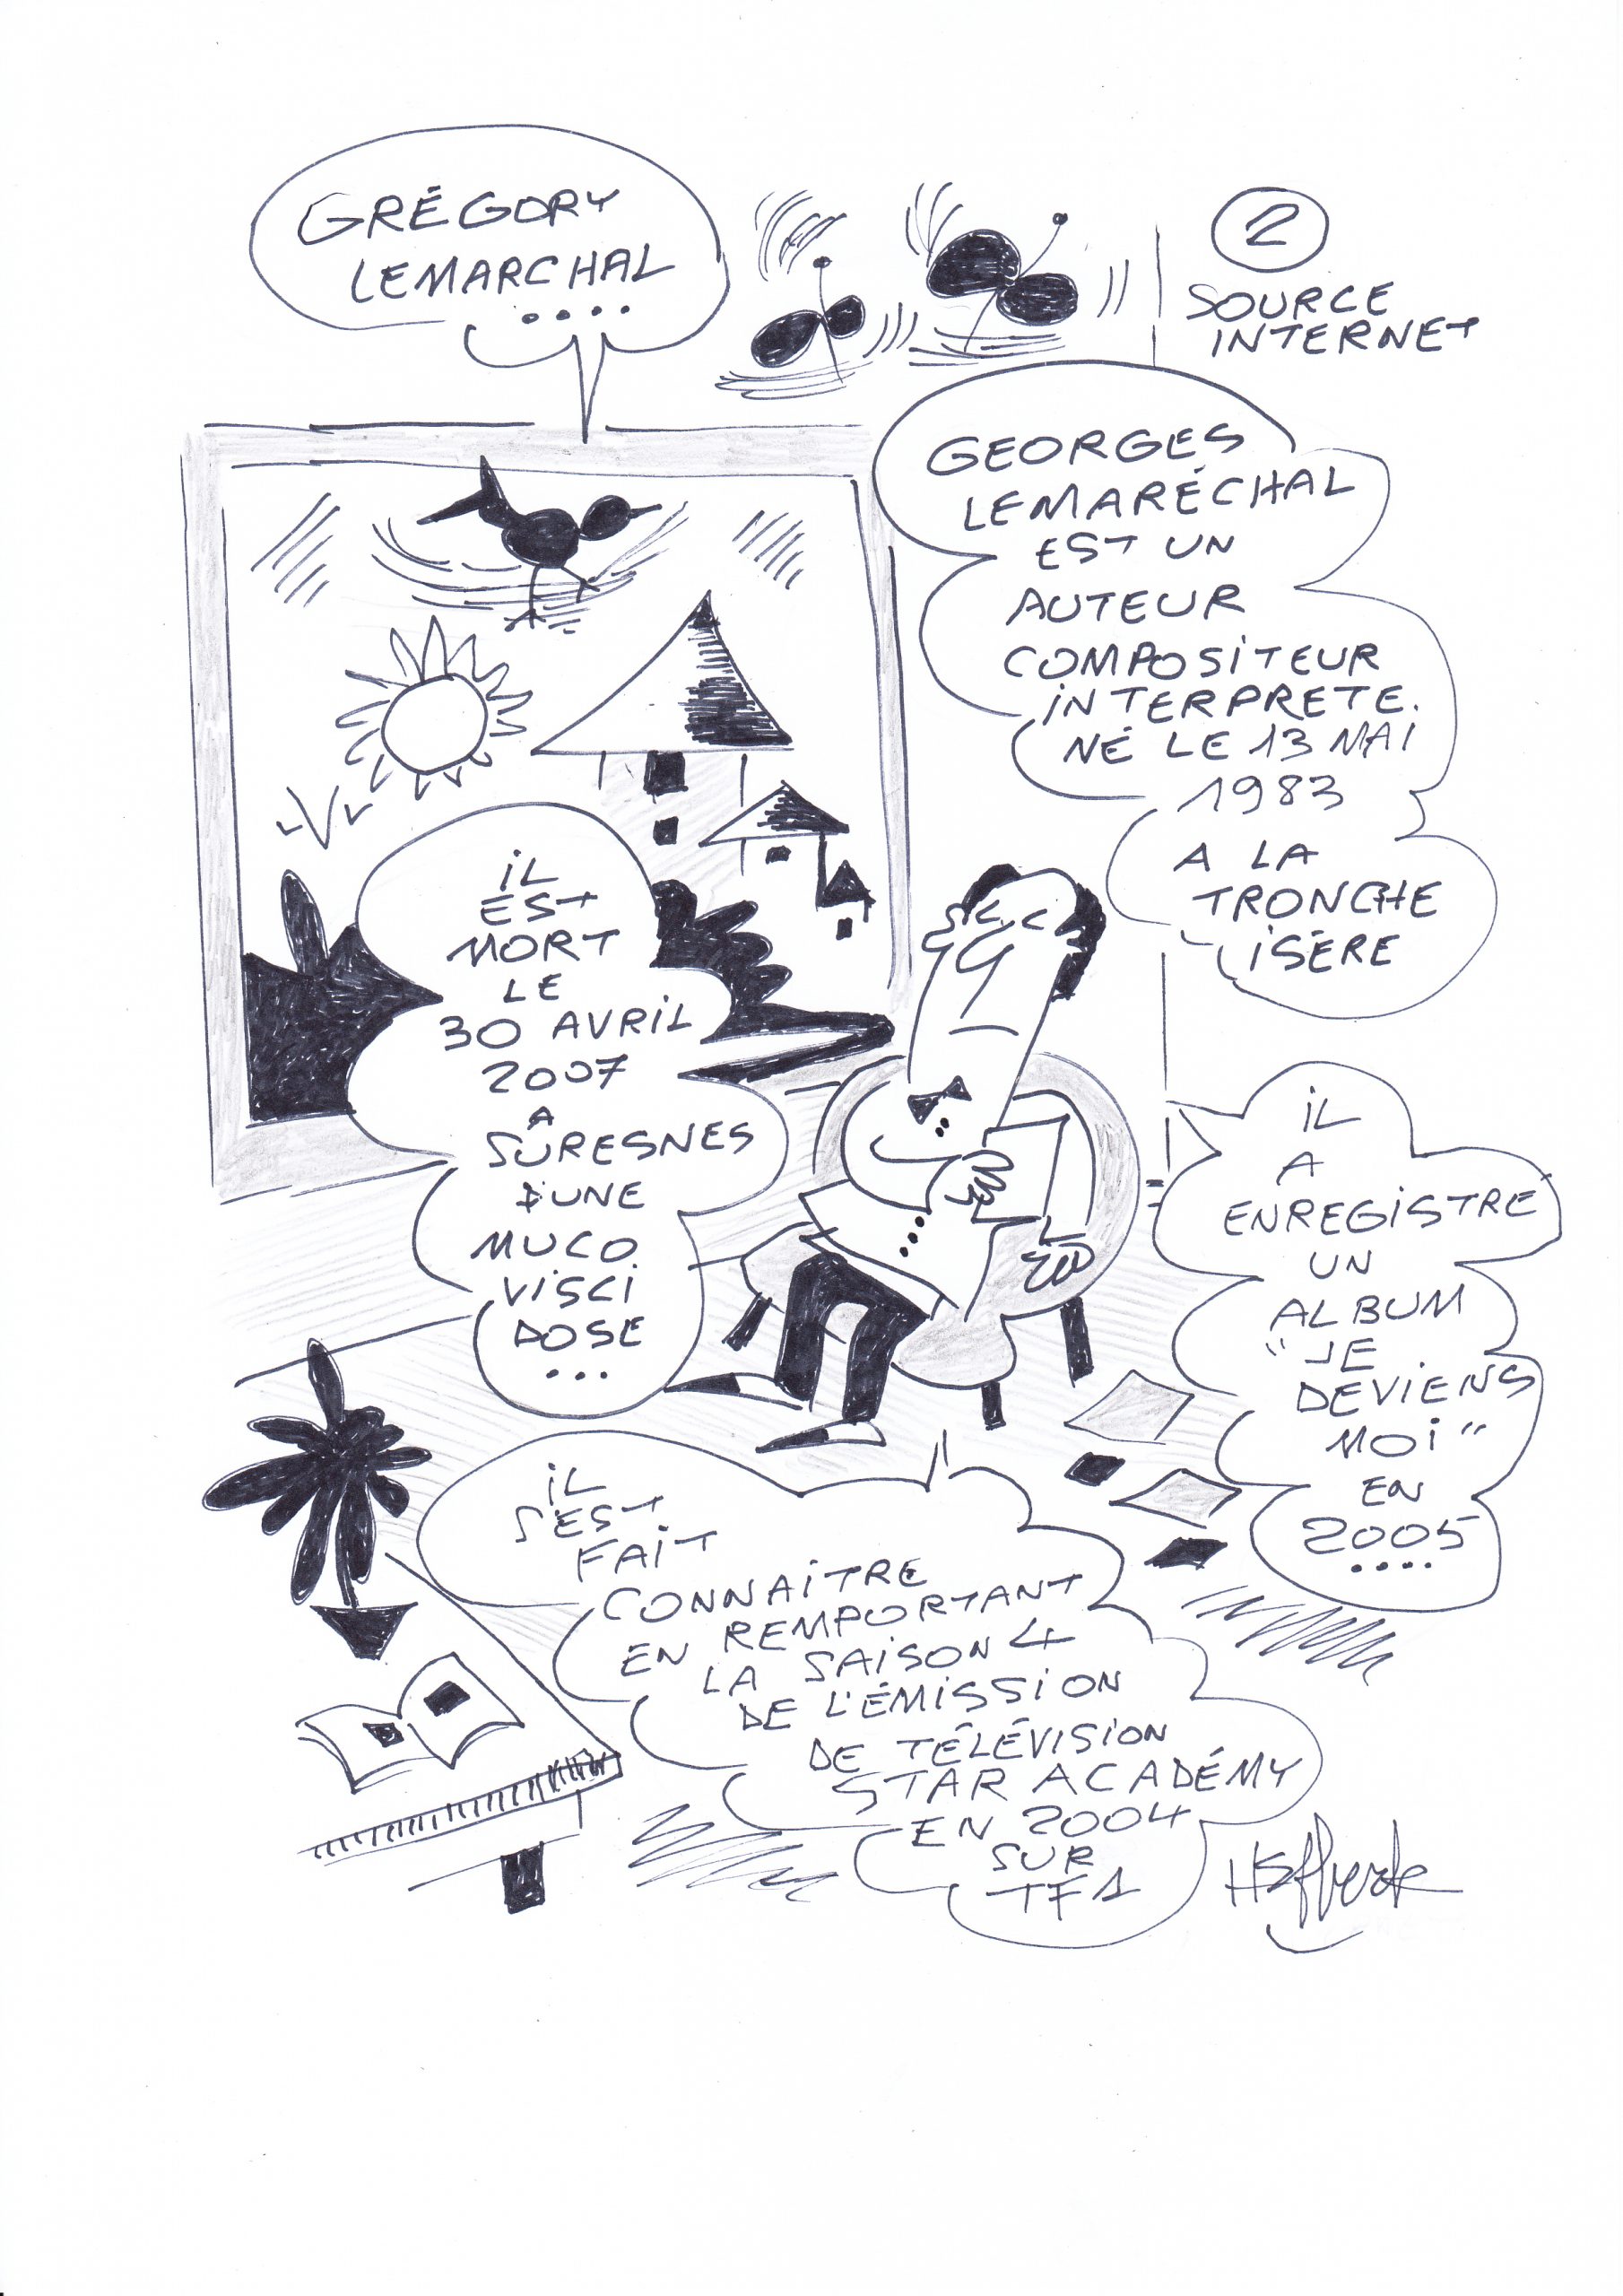 GRÉGORY
LEMARCHAL
....
2
SOURCE
INTERNET
GEORGES
LEMARÉCHAL
EST UN
AUTEUR
COMPOSITEUR
INTERPRETE.
NÉ LE 13 MAI
1983
A LA
TRONCHE
ISÈRE
IL
EST
MORT
LE
30 AVRIL
2007
A
SURESNES
D'UNE
MUCO
VISCI
DOSE
...
IL
A
ENREGISTRÉ
UN
ALBUM
"JE
DEVIENS
MOI"
EN
2005
....
IL
S'EST
FAIT
CONNAITRE
EN REMPORTANT
LA SAISON 4
DE L'ÉMISSION
DE TÉLÉVISION
STAR ACADÉMY
EN 2004
SUR
TF1